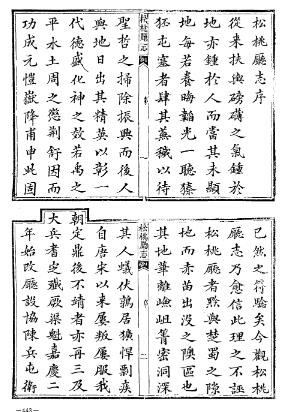 松桃廳志序
從來扶輿磅礴之氣鍾於
地亦鍾於人而當其未顯
也每若養晦韜光一聽榛
狉屯塞者肆其蓁穢以待
松桃廳志
序
聖哲之掃除振興而後人
與地日出其精英以彰一
代德威化神之效若禹之
平水土周之懲荆舒因而
功成元愷嶽降甫申此固
已然之符驗矣今觀松桃
廳志乃愈信此理之不誣
松桃廳者黔與楚蜀之隙
地而赤苗出沒之隩區也
其地華離嶮岨箐密洞深
松桃廳志
序
二
其人蟻伏鶉居獷悍剽疾
自唐宋以來屢叛屢服我
朝定鼎後不靖者亦再三及
大兵耆定殲厥渠魁嘉慶二
年始改廳設協陳兵屯衛
—443—